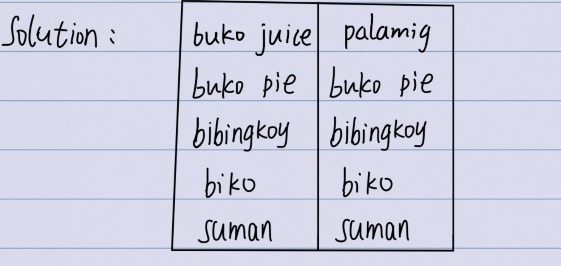 Solution : buko juice palamig
buko pie buko pie
bibingkoy bibingkoy
biko biko
suman suman